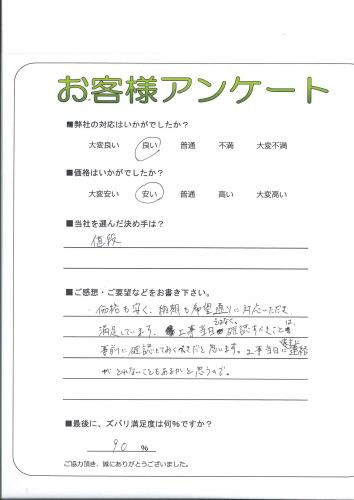 お客様アンケート
■弊社の対応はいかがでしたか?
大変良い 良い 普通 不満 大変不満
■価格はいかがでしたか?
大変安い 安い 普通 高い 大変高い
■当社を選んだ決め手は?
値段
■ご感想・ご要望などをお書き下さい。
価格も安く、納期も希望通りに対応いただき
満足しています。工事当日ではなく、確認すべきことは、
事前に確認しておくべきだと思います。工事当日に施主に連絡
がとれないこともあるかと思うので。
■最後に、ズバリ満足度は何%ですか?
90 %
ご協力頂き、誠にありがとうございました。